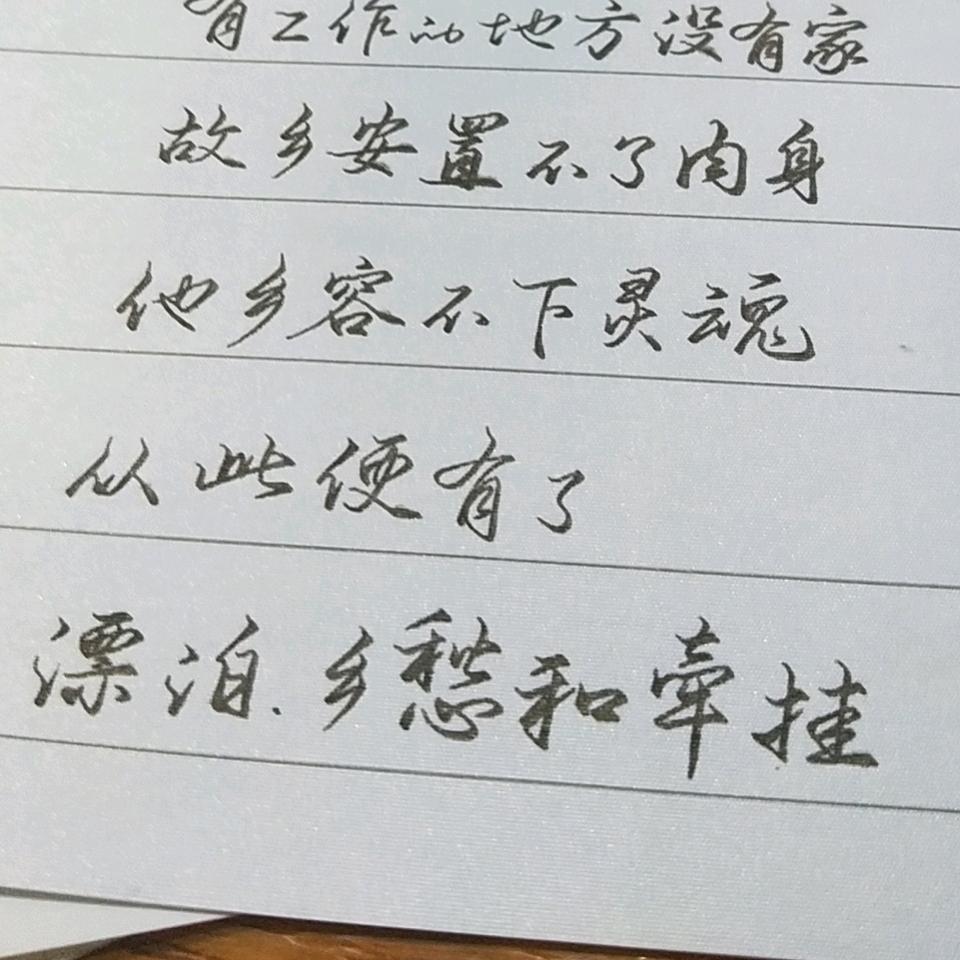 有工作的地方没有家
故乡安置不了肉身
他乡容不下灵魂
从此便有了
漂泊.乡愁和牵挂